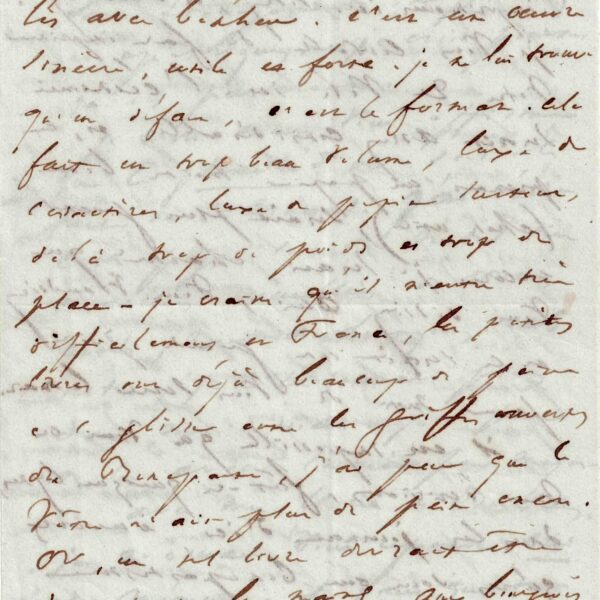 lis avec bonheur. c'est un œuvre
sincère, utile et forte. je ne lui trouve
qu'un défaut, c'est le format. cela
fait un trop beau volume, luxe de
caractères, luxe de papier
de là trop de poids et trop de
place – je crains qu'il n'entre très
difficilement en France, les petits
livres ont déjà beaucoup de peine
à se glisser entre les griffes ouvertes
du Bonaparte, j'ai peur que le
vôtre n'ait plus de peine encor.
Or, un tel livre devrait être